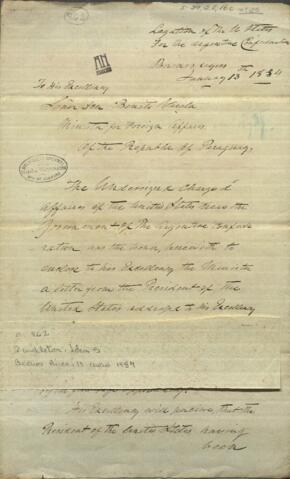 862
Legation of the U States
For the Argentine Confederation
Buenos Ayres
January 13th 1854
To His Excellency
Señor Don Benito Varela
Minister for Foreign Affairs
Of the Republic of Paraguay,
The Undersigned Chargé d'
Affaires of the United States near the
Government of the Argentine Confede
ration has the honor, herewith to
enclose to his Excellency the Minister
a letter from the President of the
United States address to his Excellency
862
Pendleton, John S
Buenos Aires, 13 enero 1854
His Excellency will perceive, that the
President of the United States having
been